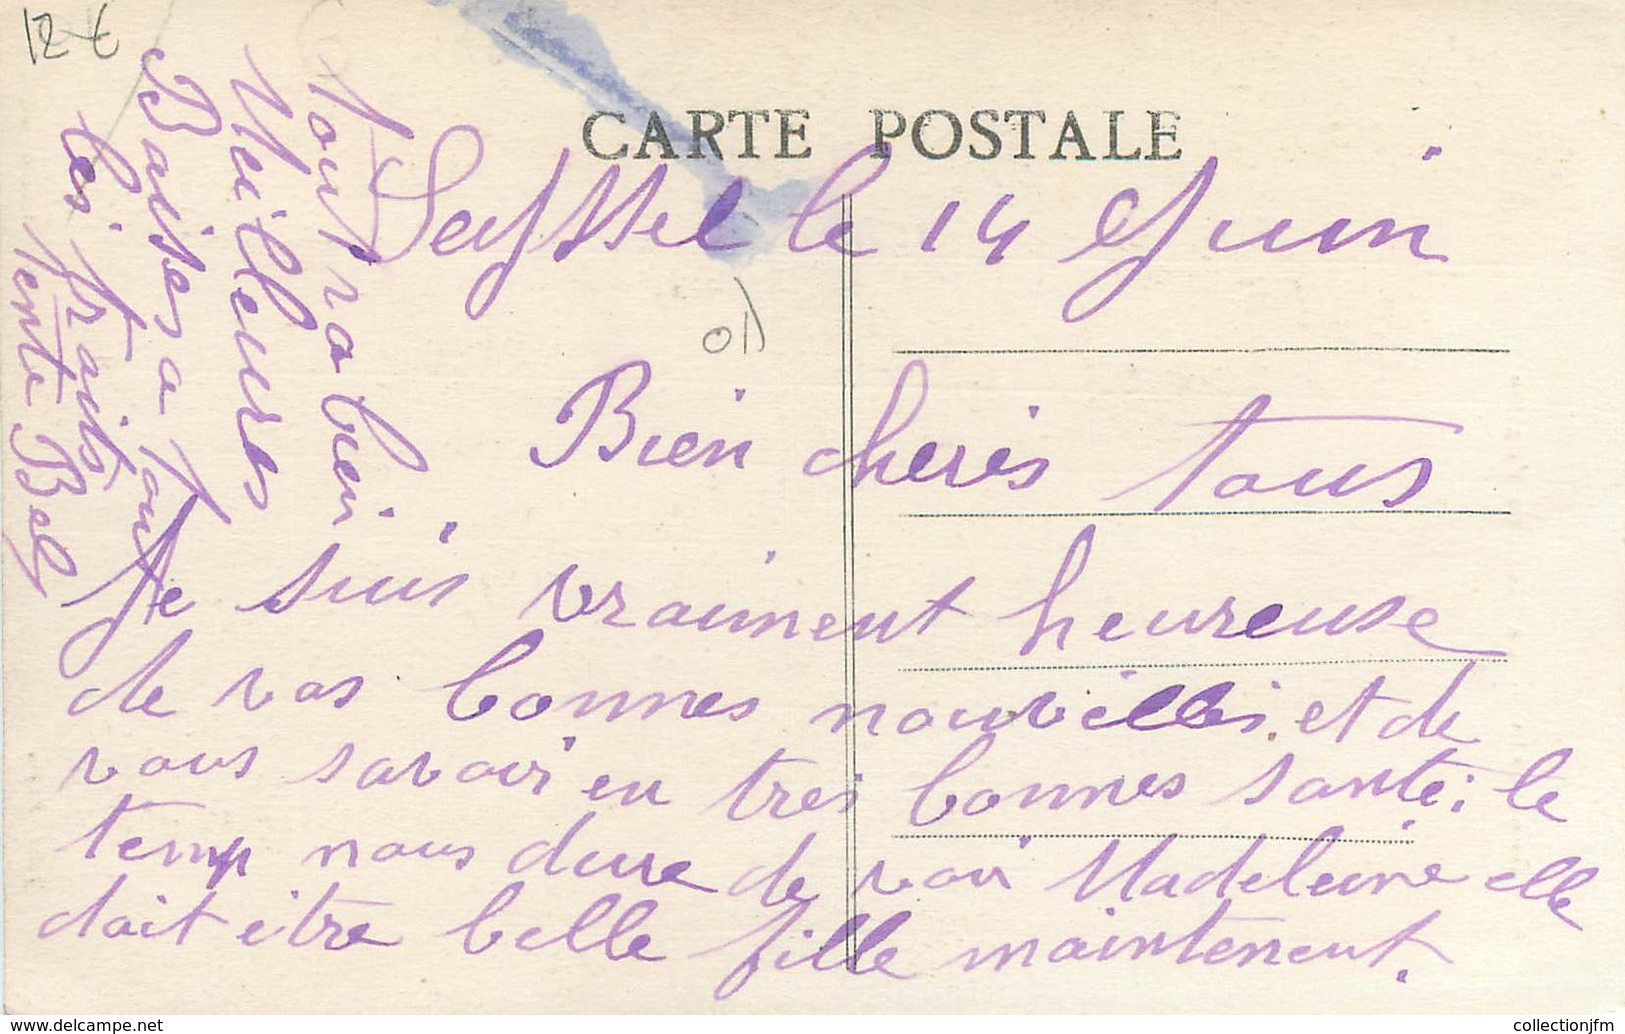 12 €
CARTE POSTALE
Seyssel le 14 Juin
Bien cheris tous
Je suis vraiment heureuse
de vos bonnes nouvelles et de
vous savoir en tres bonnes santé: le
temp nous dure de voir Madeleine elle
doit être belle fille maintenent.
Tout va bien.
Meilleures
Baises a tous
les
tente
www.delcampe.net
collectionjfm